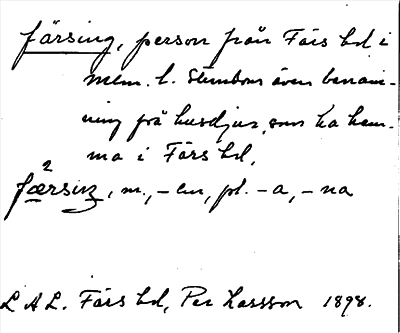 färsing, person från Färs hd i
mlm. l. Stundom även benäm-
ning på husdjur, som ha hem-
ma i Färs hd,
fær²siŋ, m., -en, pl. -a, -na
L A L. Färs hd, Per Larsson 1898.